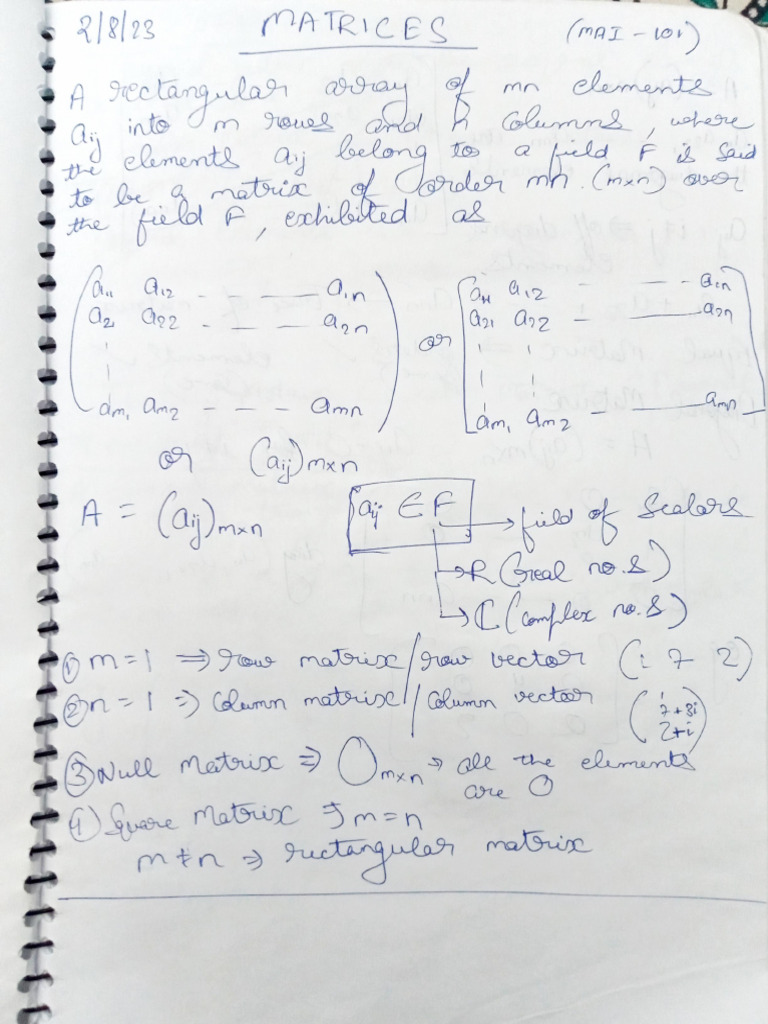 2/8/23 MATRICES (MAI - 101)
A rectangular array of mn elements
aij into m rows and n columns, where
the elements aij belong to a field F is said
to be a matrix of order mn. (m×n) over
the field F, exhibited as
a11 a12 - - - a1n
a21 a22 - - - a2n
am1 am2 - - - amn
or
a11 a12 - - - a1n
a21 a22 - - a2n
am1 am2 - - amn
or (aij)m×n
A = (aij)m×n aij ∈ F → field of scalars
→ R (real no.s)
→ C (complex no.s)
① m=1 ⇒ row matrix/row vector (i 7 2)
② n=1 ⇒ column matrix/column vector (i 7+8i 2+i)
③ Null Matrix ⇒ Om×n → all the elements
are 0
④ Square Matrix ⇒ m=n
m≠n ⇒ rectangular matrix